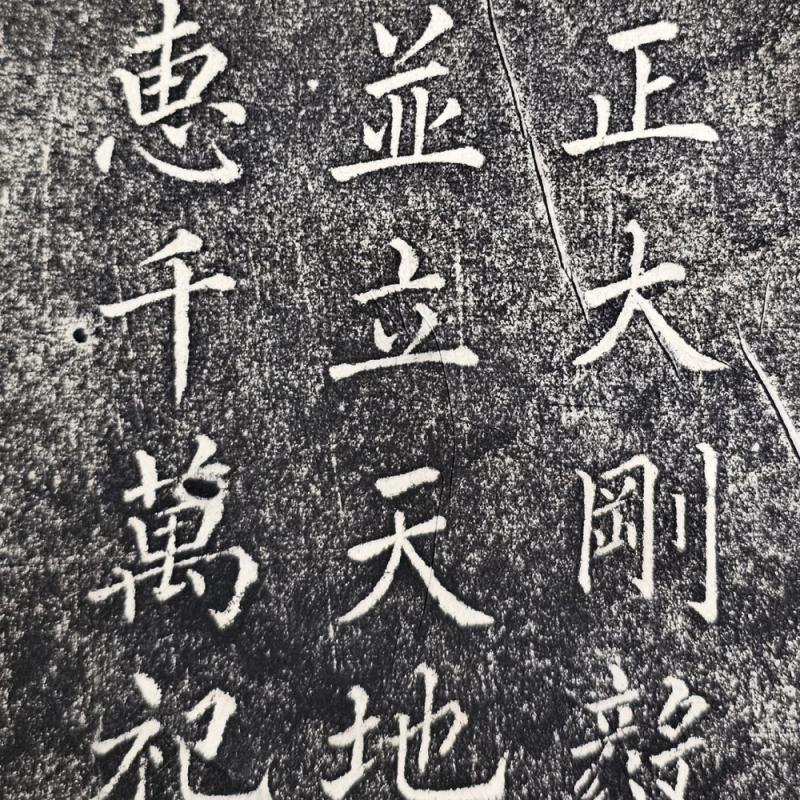 正大剛毅
並立天地
惠千萬祀